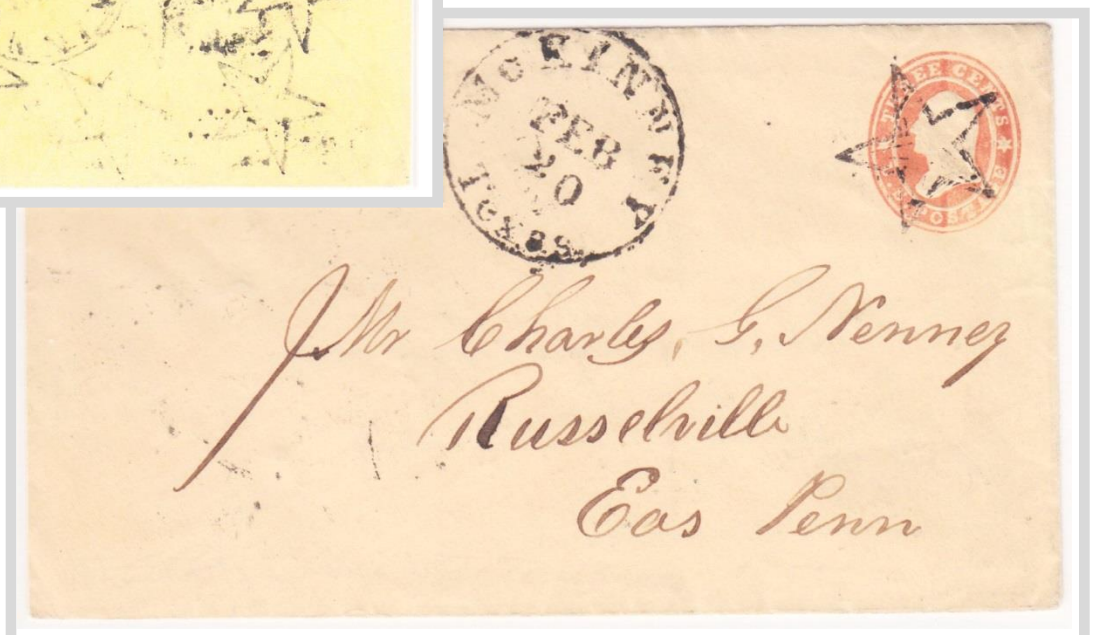 McKINNEY
FEB
20
Texas
THREE CENTS
U.S. POSTAGE
Mr Charles, G, Nenney
Russelville
Eas Tenn